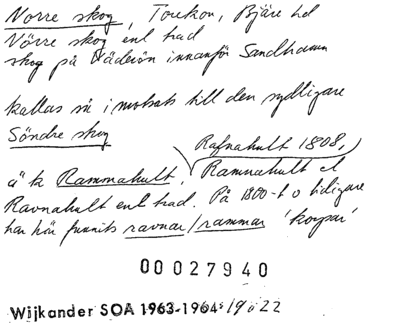 Norre skog, Torekov, Bjäre hd
Nörre skog enl trad
skog på Väderön innanför Sandhamn
kallas så i motsats till den sydligare
Söndre skog
Rafnahult 1808,
ä ta Rammahult, Ramnahult el
Ravnahult enl trad. På 1800-t o tidigare
har här funnits ravnar/rammar 'korpar'
00027940
Wijkander SOA 1963-1964: 19622